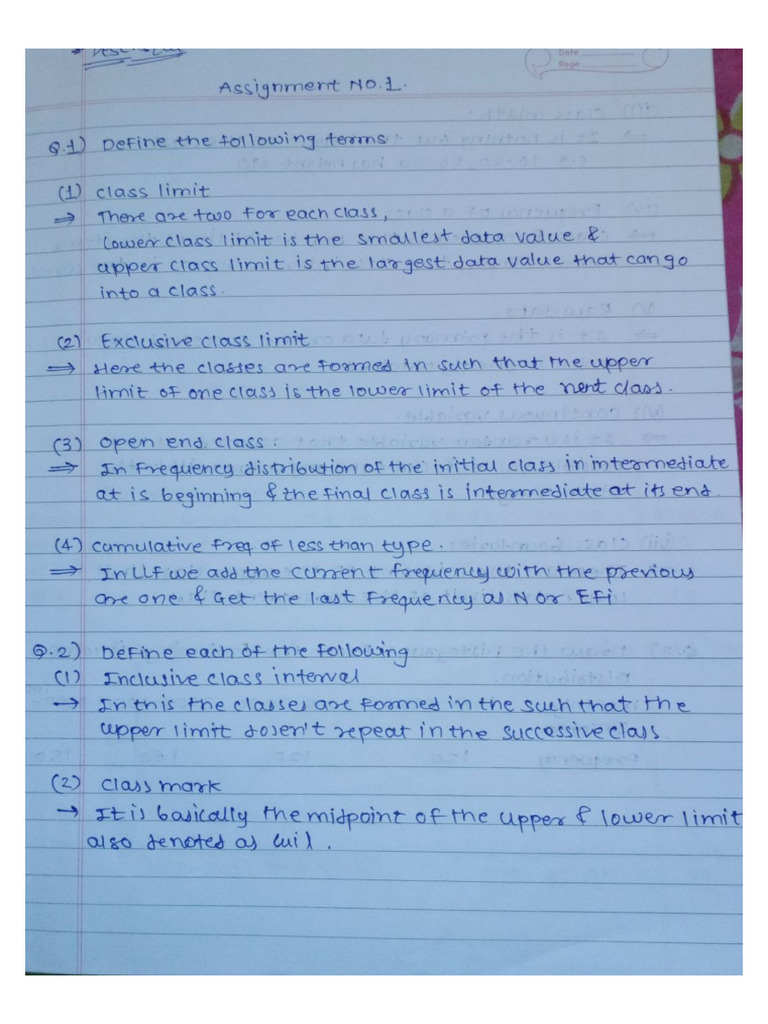 Date
Page
Assignment No.1.
Q.1) Define the following terms
(1) class limit
⇒ There are two for each class,
lower class limit is the smallest data value &
upper class limit is the largest data value that can go
into a class.
(2) Exclusive class limit
⇒ Here the classes are formed in such that the upper
limit of one class is the lower limit of the next class.
(3) open end class:
⇒ In frequency distribution of the initial class in intermediate
at is beginning & the final class is intermediate at its end.
(4) cumulative freq of less than type.
⇒ In LLF we add the current frequency with the previous
are one & Get the last Frequency as N or EFi
Q.2) Define each of the following
(1) Inclusive class interval
→ In this the classes are formed in the such that the
upper limit dosen't repeat in the successive class
(2) class mark
→ It is basically the midpoint of the upper & lower limit
also denoted as